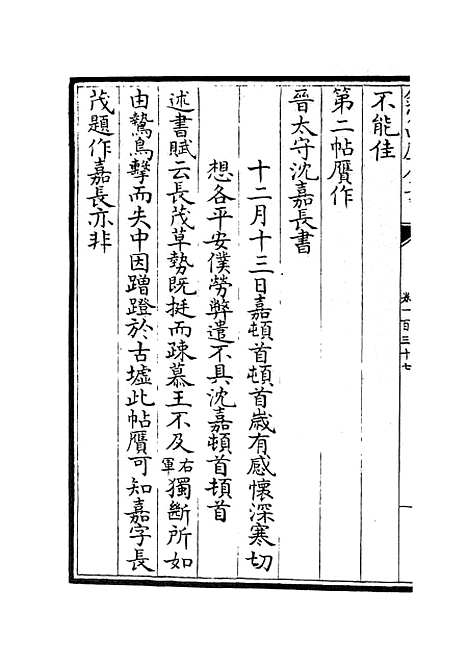 卷一百三十七
不能佳
第二帖贗作
晉太守沈嘉長書
十二月十三日嘉頓首頓首歲有感懷深寒切
想各平安僕勞弊遣不具沈嘉頓首頓首
述書賦云長茂草勢既挺而疎慕王不及右軍獨斷所如
由鷙鳥擊而失中因蹭蹬於古墟此帖贗可知嘉字長
茂題作嘉長亦非